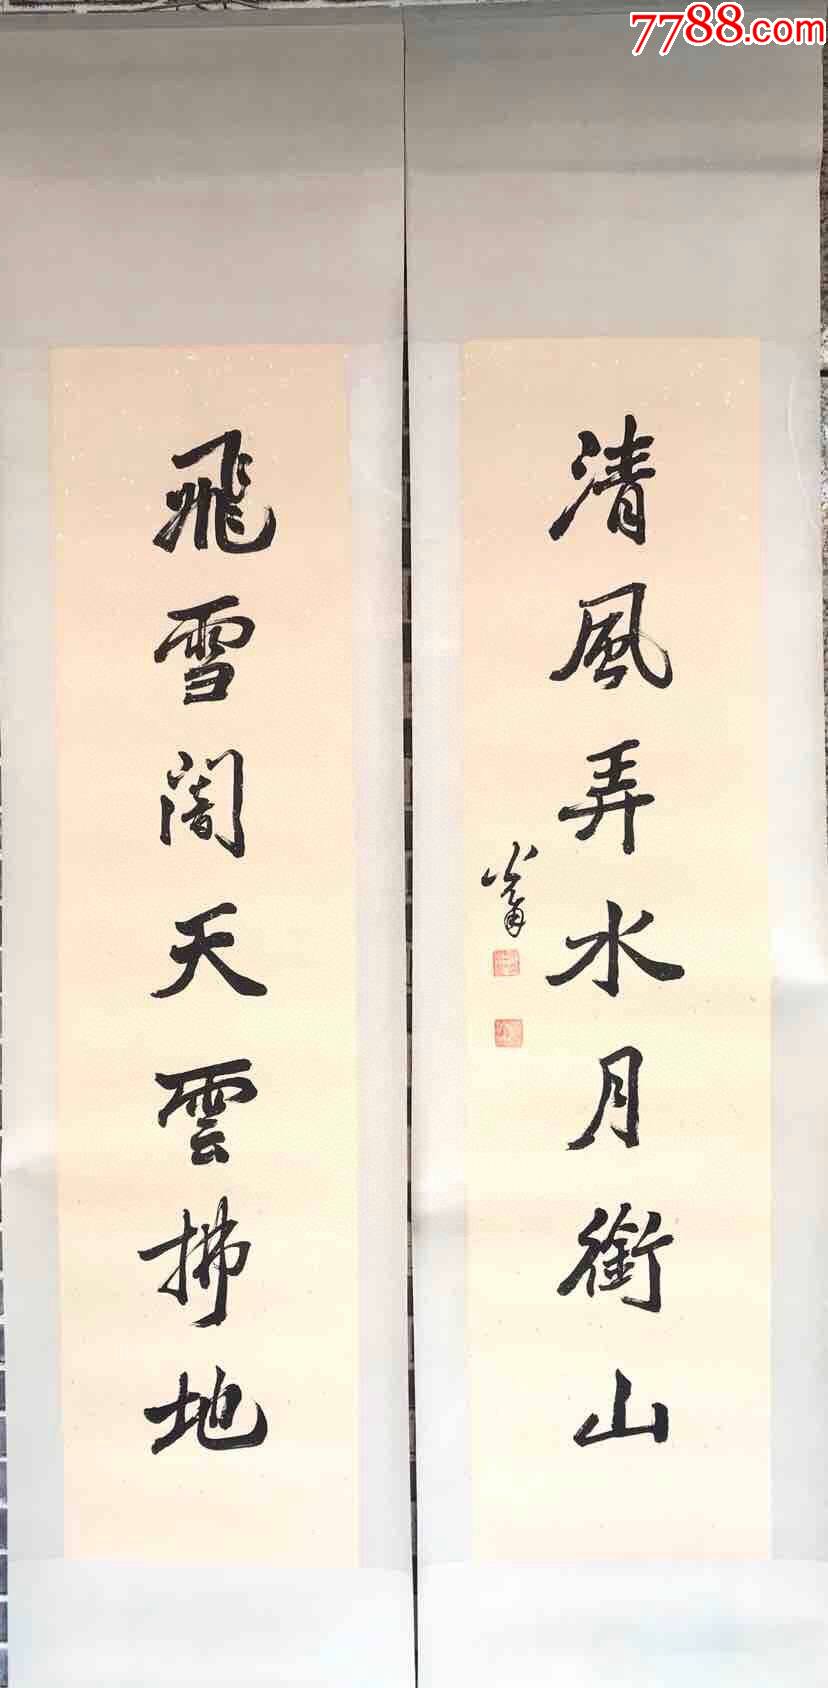 7788.com
清風弄水月銜山
飛雪闇天雲拂地